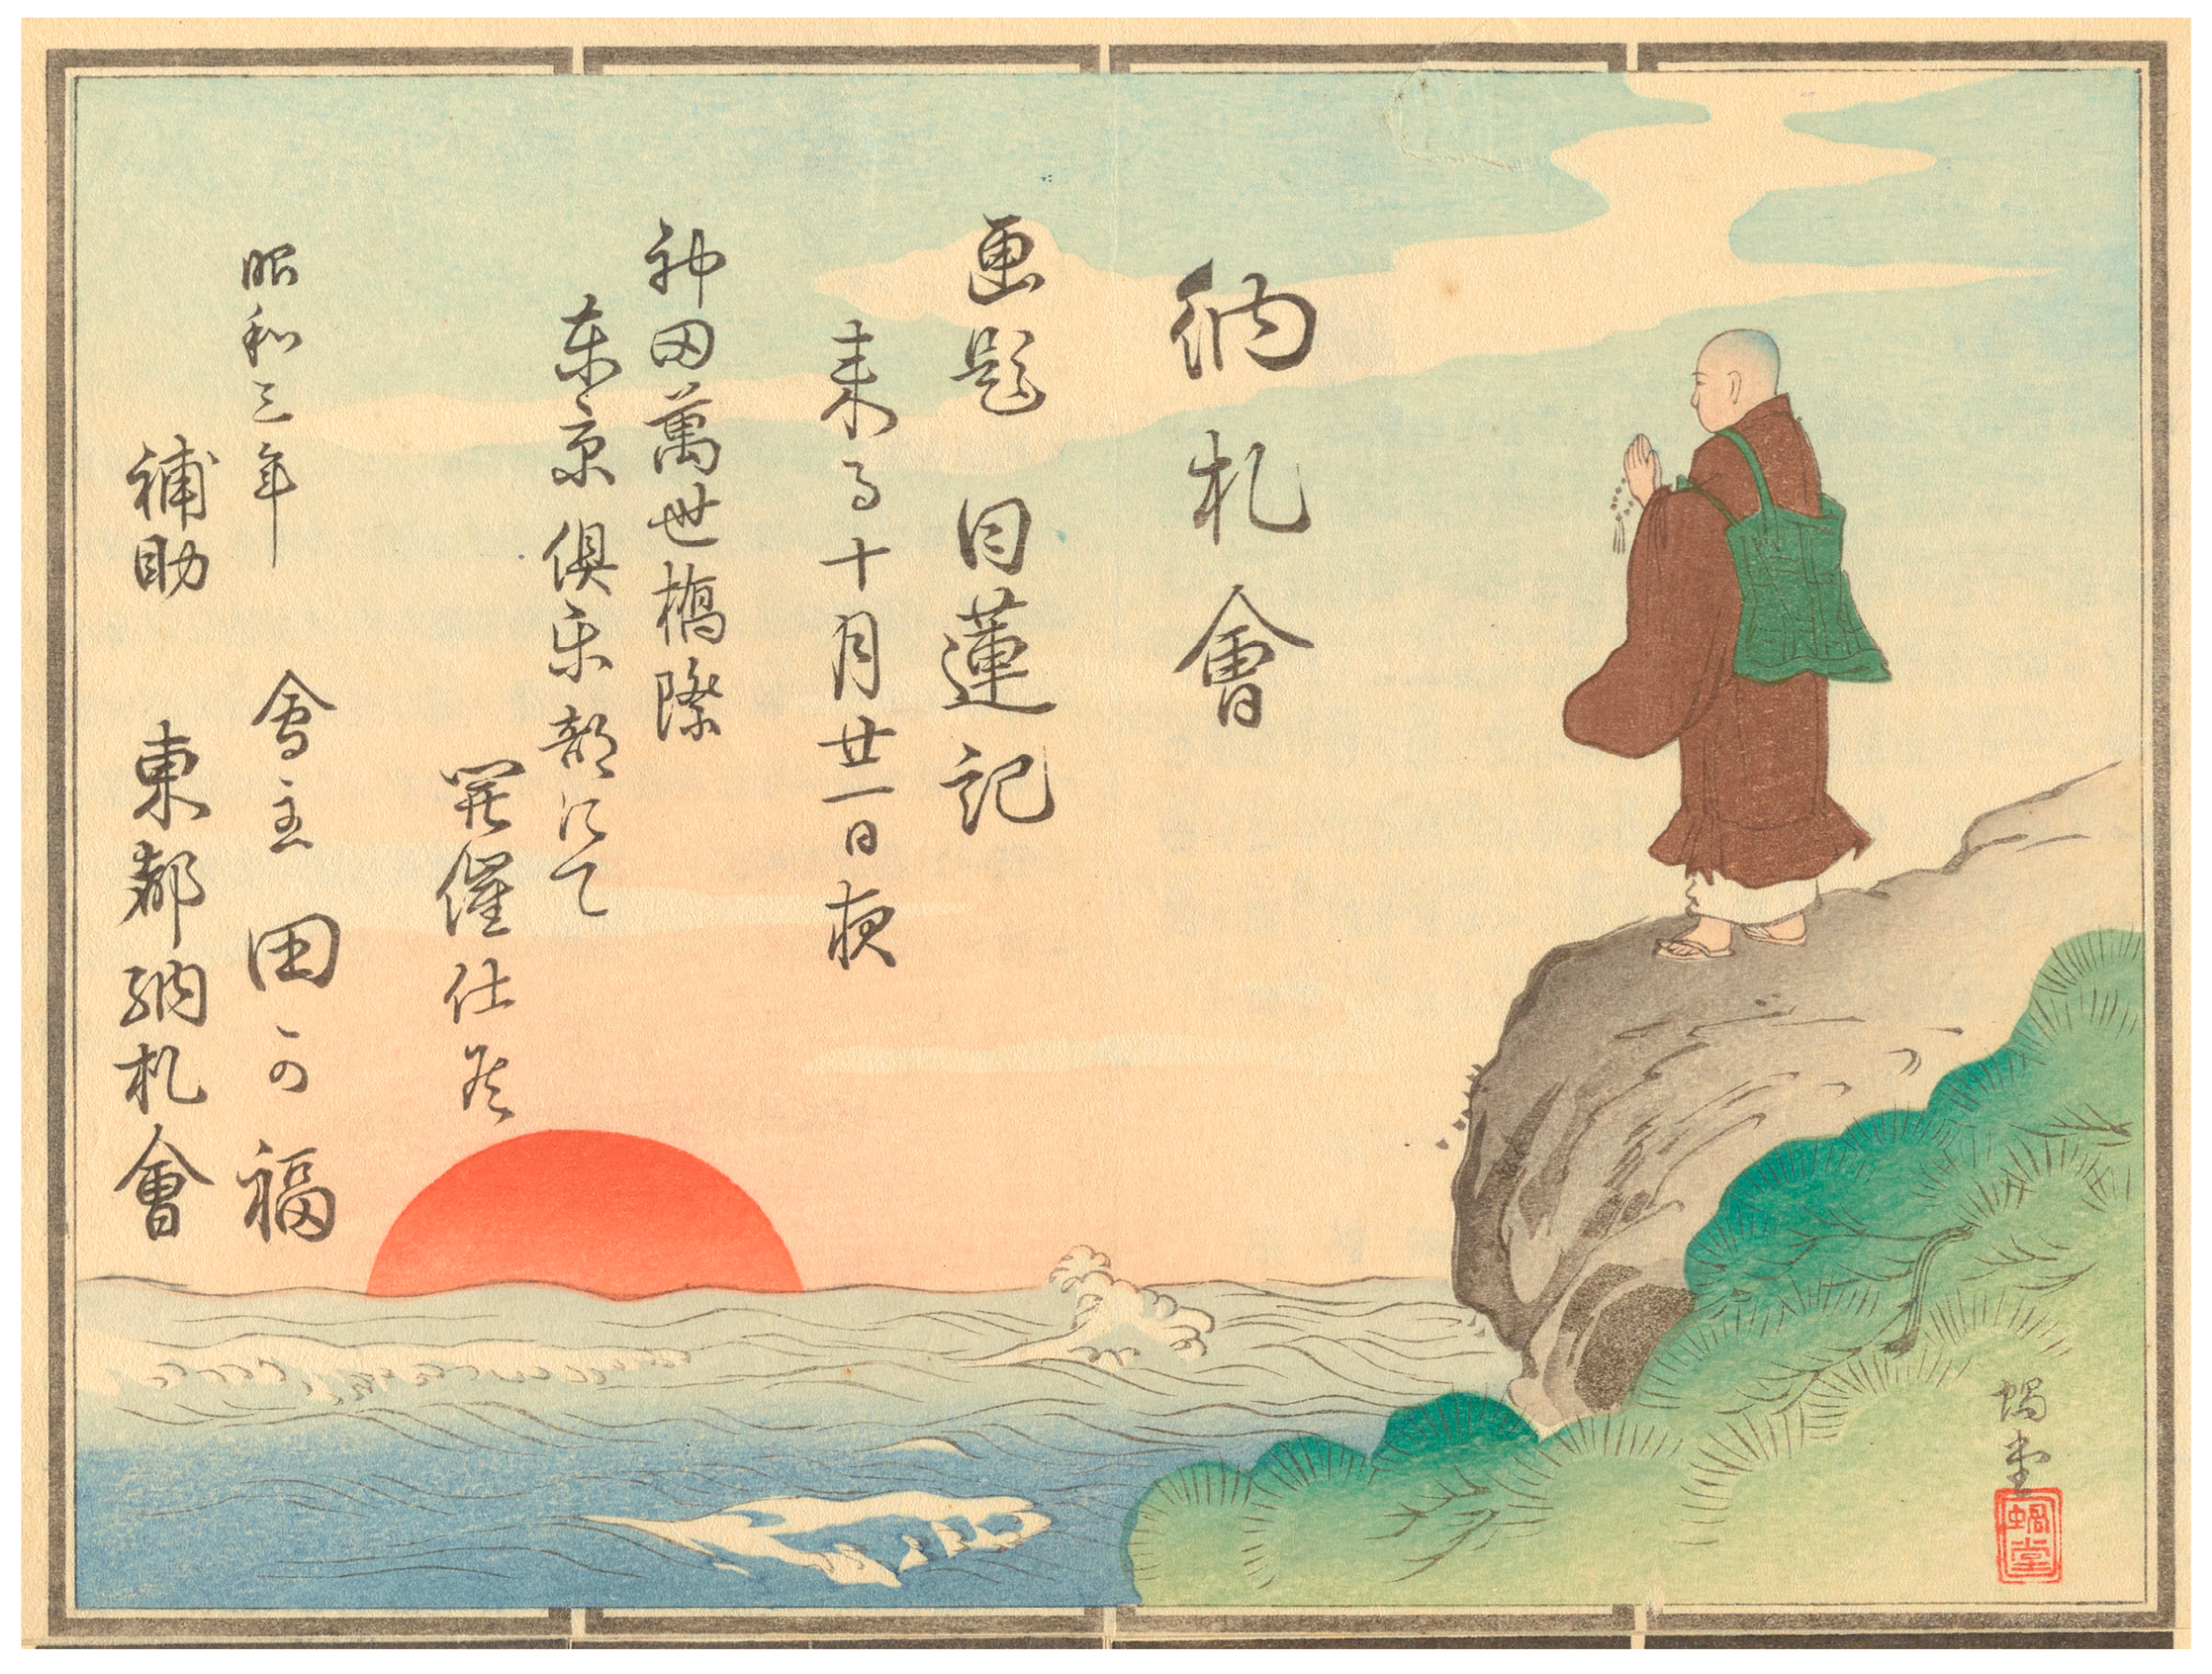 納札會
画題 日蓮記
来る十月廿一日夜
神田萬世橋際
東京俱楽部にて
開催仕候
昭和三年
會主 田の福
補助 東都納札會
蝸堂
蝸堂